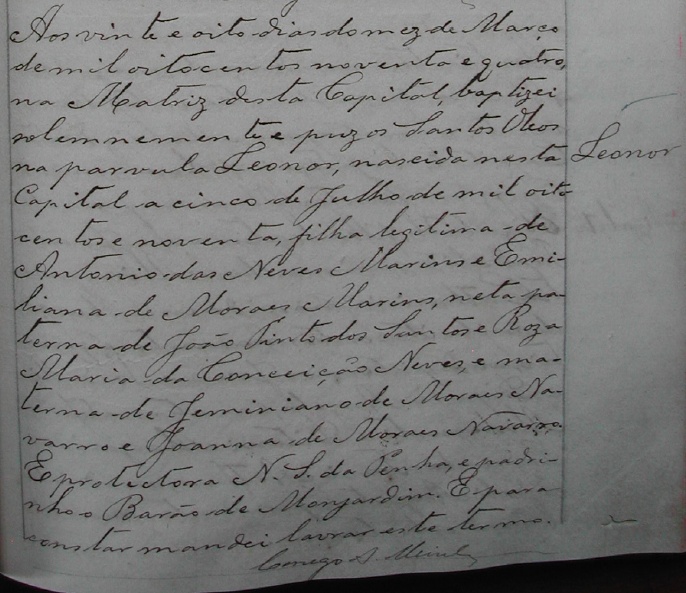 Aos vinte e oito dias do mez de Março
de mil oitocentos noventa e quatro,
na Matriz desta Capital, baptizei
solemnemente e puz os Santos Oleos
na parvula Leonor, nascida nesta
Leonor
Capital a cinco de Julho de mil oito
centos e noventa, filha legitima de
Antonio das Neves Marins e Emi-
liana de Moraes Marins, neta pa-
terna de João Pinto dos Santos e Roza
Maria da Conceição Neves, e ma-
terna de Jeminiano de Moraes Na-
varro e Joanna de Moraes Navarro.
E protectora N. S. da Penha, e padri-
nho o Barão de Monjardim. E para
constar mandei lavrar este termo.
Conego